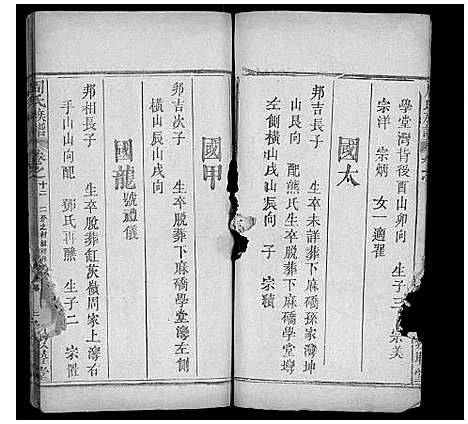 學堂灣背後酉山卯向 生子三 宗美
宗洋 宗炳 女一適翟
國太
邦吉長子 生卒未詳葬下麻磽孫家灣坤
山艮向 配熊氏生卒脫葬下麻磽學堂灣
左側橫山戌山辰向 子 宗積
國甲
邦吉次子 生卒脫葬下麻磽學堂灣左側
橫山辰山戌向
國龍 號禮儀
邦相長子 生卒脫葬紅茨嶺周家上灣右
手山山向配 鄧氏 葬 生子二 宗置
周氏族譜